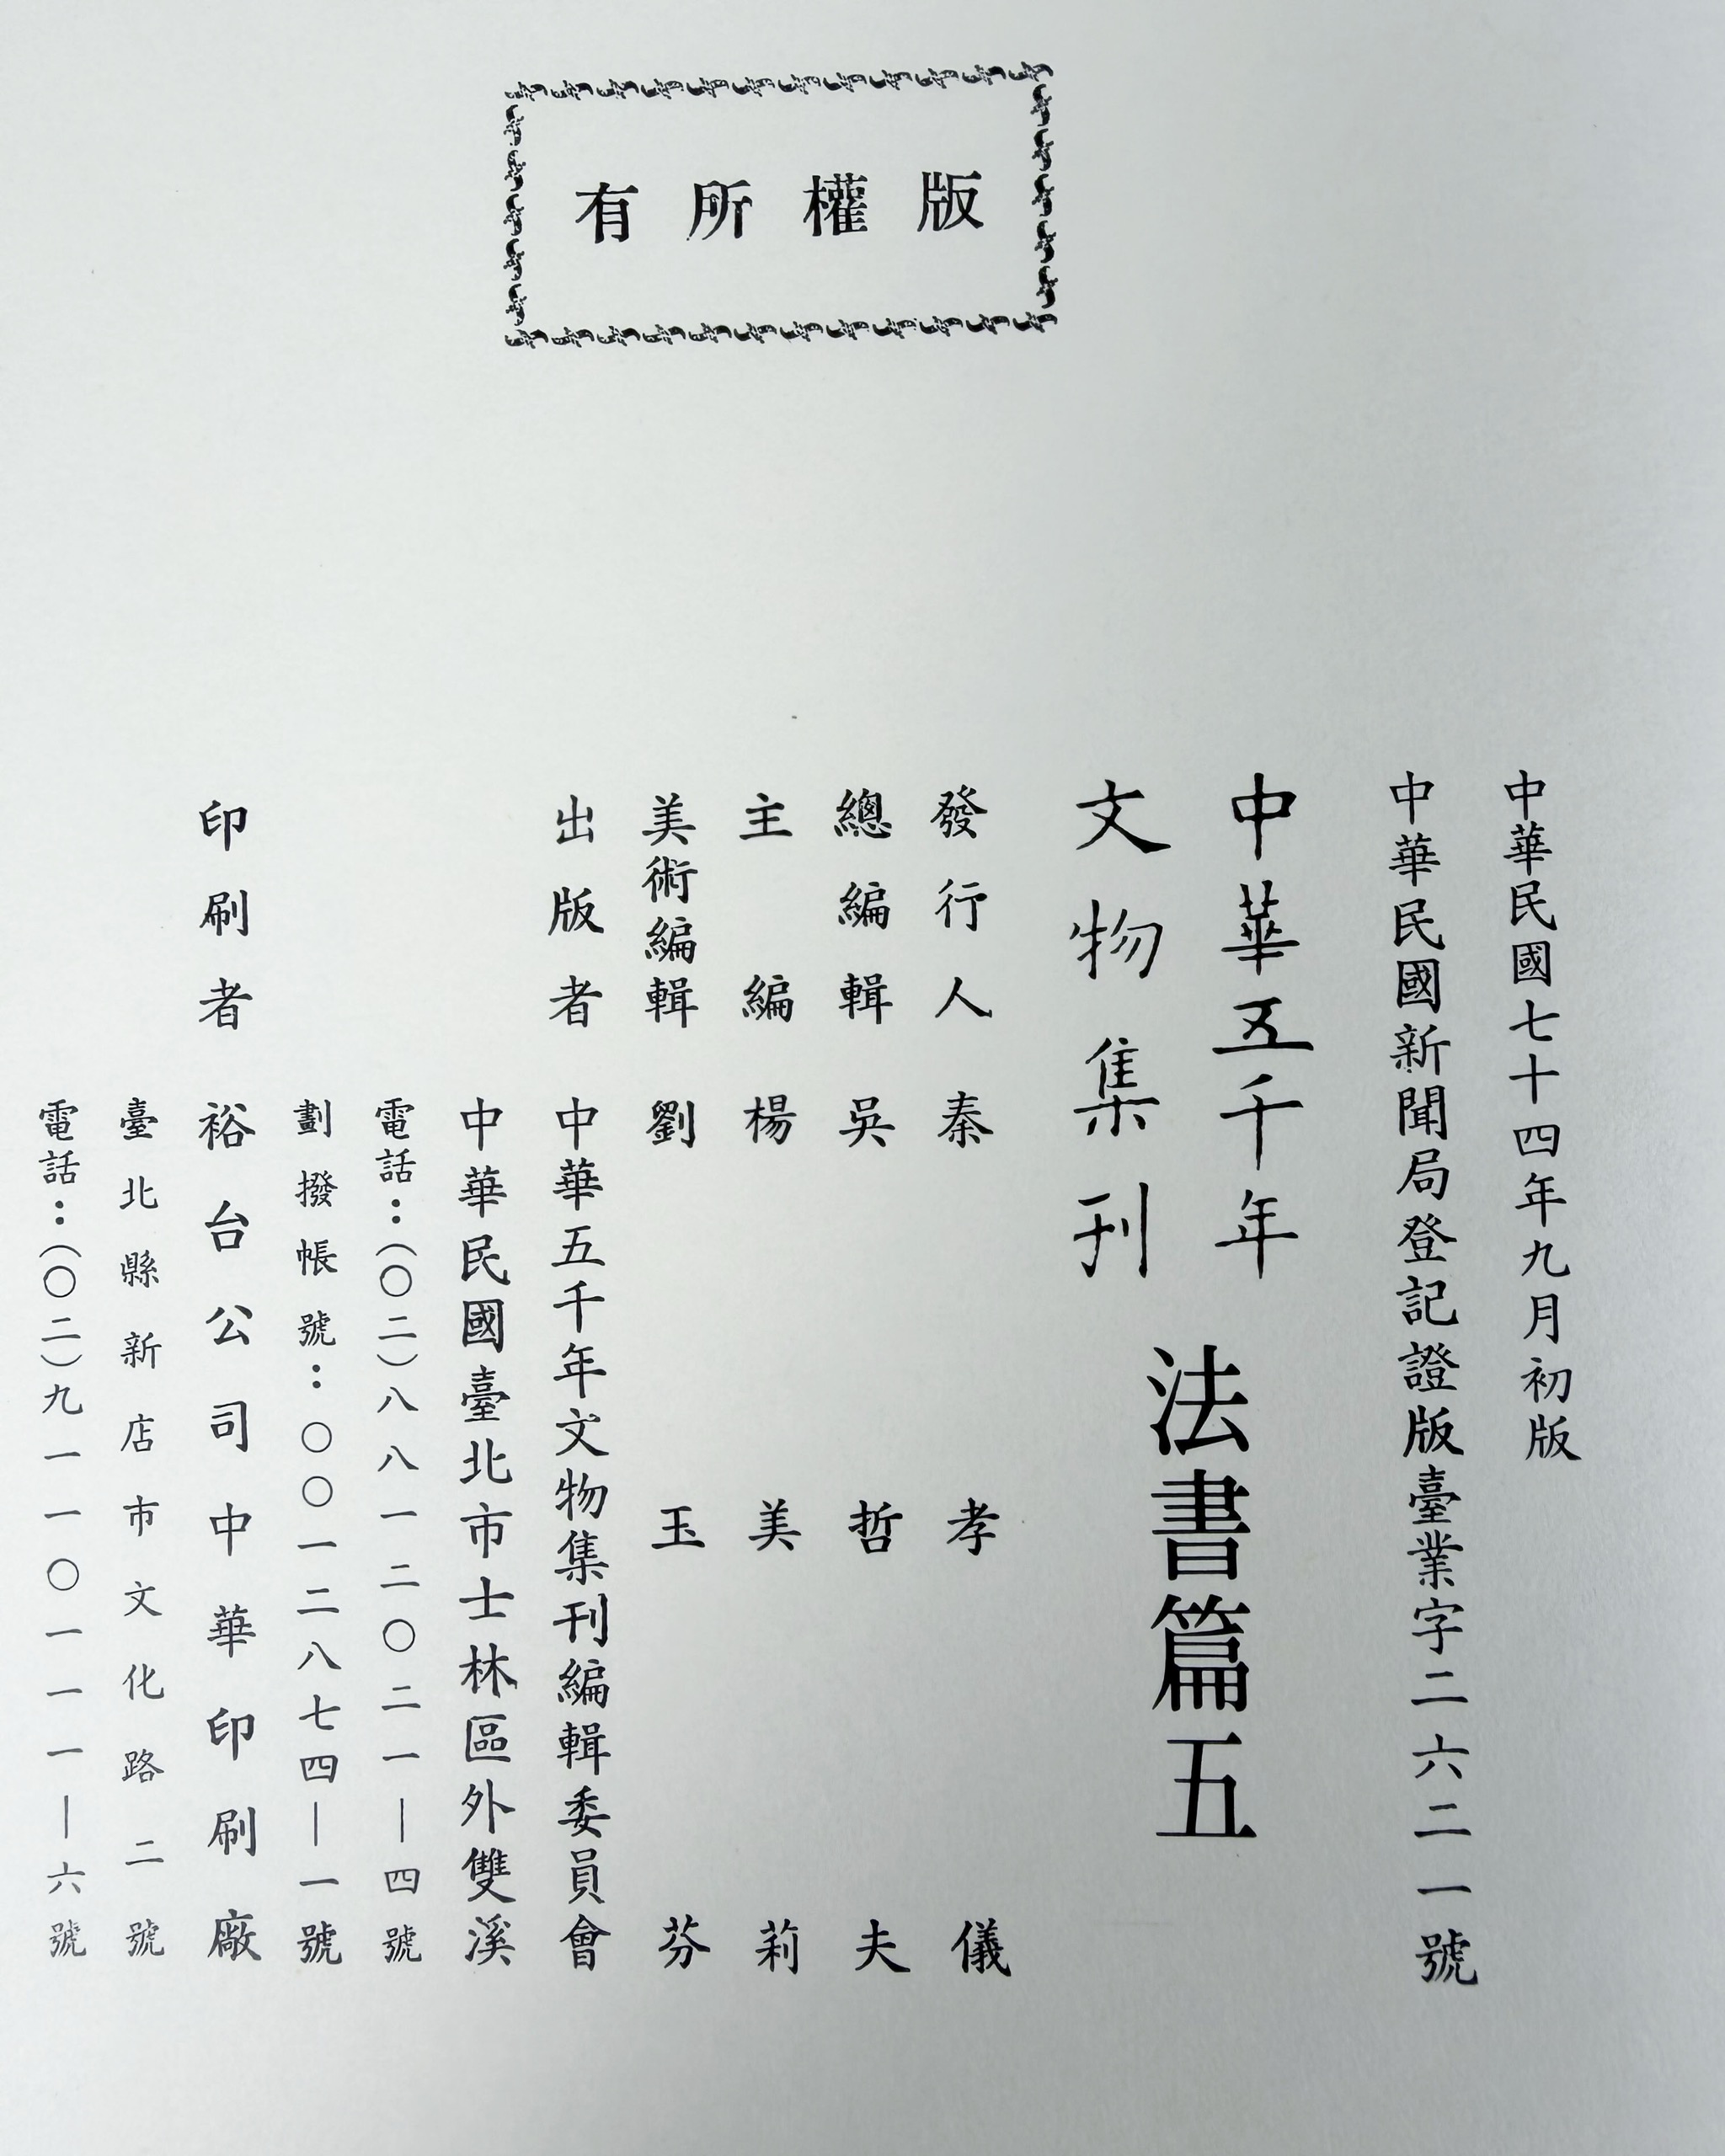 版權所有
中華民國七十四年九月初版
中華民國新聞局登記證版臺業字二六二一號
中華五千年
文物集刊
法書篇五
發行人 秦孝儀
總編輯 吳哲夫
主編 楊美莉
美術編輯 劉玉芬
出版者 中華五千年文物集刊編輯委員會
中華民國臺北市士林區外雙溪
電話：(〇二)八八一二〇二一—四號
劃撥帳號：〇〇一二八七四—一號
印刷者 裕台公司中華印刷廠
臺北縣新店市文化路二號
電話：(〇二)九一一〇一一一—六號